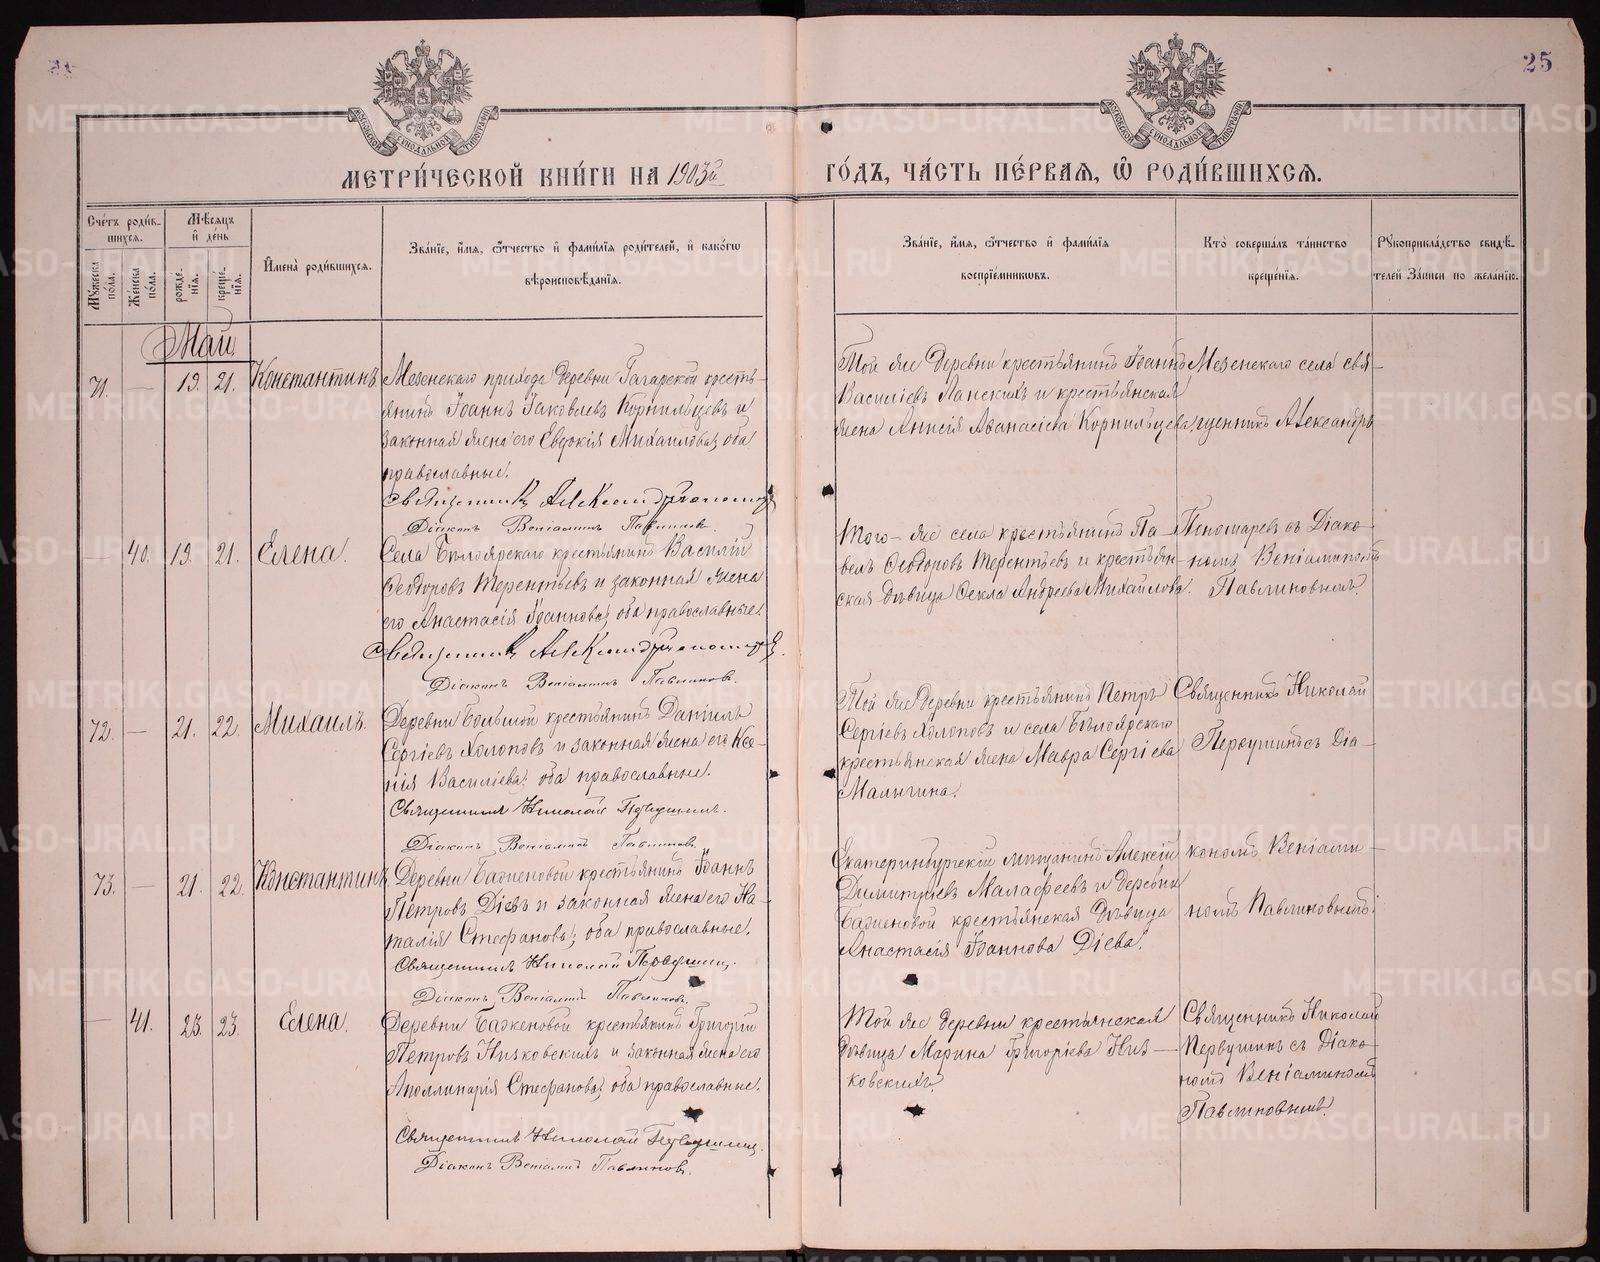 25
МОСКОВСКОЙ СѴНОДАЛЬНОЙ ТИПОГРАФІИ
МОСКОВСКОЙ СѴНОДАЛЬНОЙ ТИПОГРАФІИ
МЕТРИ́ЧЕСКОЙ КНИ́ГИ НА 1903й
ГО́ДЪ, ЧА́СТЬ ПЕ́РВАЯ, Ѽ РОДИ́ВШИХСЯ.
Сче́тъ роди́в-
шихся.
Мужеска по́ла.
Же́нска по́ла.
Мѣ́сяцъ
и҆ де́нь
рожде́-
нїя.
креще́-
нїя.
И҆мена̀ роди́вшихся.
Зва́нїе, и҆́мя, ѻ҆́тчество и҆ фами́лїя роди́телей, и҆ како́гѡ
вѣроисповѣ́данїя.
Зва́нїе, и҆́мя, ѻ҆́тчество и҆ фами́лїя
воспрїе́мниковъ.
Кто̀ соверша́лъ та́инство
креще́нїя.
Рукоприкла́дство свидѣ́-
телей за́писи по жела́нїю.
Май
71. — 19. 21. Константинъ.
Мезенскаго прихода деревни Гагарской кресть-
янинъ Іоаннъ Іаковлевъ Корнильцевъ и
законная жена его Евдокія Михаилова; оба
православные.
Священникъ Александръ Пономаревъ
Діаконъ Веніаминъ Павлиновъ.
Той же деревни крестьянинъ Іоаннъ
Василіевъ Ланскихъ и крестьянская
жена Анисія Аѳанасіева Корнильцева.
Мезенскаго села свя-
щенникъ Александръ
— 40. 19. 21. Елена.
Села Бѣлоярскаго крестьянинъ Василій
Ѳеодоровъ Терентьевъ и законная жена
его Анастасія Іоаннова; оба православные.
Священникъ Александръ Пономаревъ.
Діаконъ Веніаминъ Павлиновъ.
Того-же села крестьянинъ Па-
велъ Ѳеодоровъ Терентьевъ и крестьян-
ская дѣвица Ѳекла Андреева Михайлова.
Пономаревъ съ Діако-
номъ Веніаминомъ
Павлиновымъ.
72. — 21. 22. Михаилъ.
Деревни Большой крестьянинъ Даніилъ
Сергіевъ Холоповъ и законная жена его Ксе-
нія Василіева; оба православные.
Священникъ Николай Первушинъ.
Діаконъ Веніаминъ Павлиновъ.
Той же деревни крестьянинъ Петръ
Сергіевъ Холоповъ и села Бѣлоярскаго
крестьянская жена Мавра Сергіева
Малыгина.
Священникъ Николай
Первушинъ съ Діа-
73. — 21. 22. Константинъ.
Деревни Баженовой крестьянинъ Іоаннъ
Петровъ Діевъ и законная жена его На-
талія Стефанова; оба православные.
Священникъ Николай Первушинъ.
Діаконъ Веніаминъ Павлиновъ.
Екатеринбургскій мѣщанинъ Алексій
Димитріевъ Малафеевъ и деревни
Баженовой крестьянская дѣвица
Анастасія Іоаннова Діева.
кономъ Веніами-
номъ Павлиновымъ.
— 41. 23. 23. Елена.
Деревни Баженовой крестьянинъ Григорій
Петровъ Низковскихъ и законная жена его
Аполлинарія Стефанова; оба православные.
Священникъ Николай Первушинъ.
Діаконъ Веніаминъ Павлиновъ.
Той же деревни крестьянская
дѣвица Марина Григоріева Низ-
ковскихъ.
Священникъ Николай
Первушинъ съ Діако-
номъ Веніаминомъ
Павлиновымъ.
METRIKI.GASO-URAL.RU